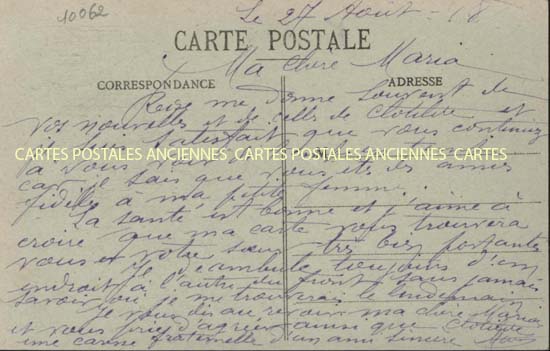 10062
Le 27 Août - 18
CARTE POSTALE
Ma chère Maria
CORRESPONDANCE
ADRESSE
me donne souvent de
vos nouvelles et de celles de Clotilde et
je suis satisfait que vous continuiez
CARTES POSTALES ANCIENNES CARTES POSTALES ANCIENNES CARTES
à vous
car je sais que vous êtes des amies
fidèles à ma petite femme.
La santé est bonne et j'aime à
croire que ma carte vous trouvera
vous et votre sœur très bien portantes
Je déambule toujours d'un
endroit à l'autre du front sans jamais
savoir où je me trouverai le lendemain
Je vous dis au revoir ma chère Maria
et vous prie d'agréer ainsi que Clotilde
une caresse fraternelle d'un ami sincère